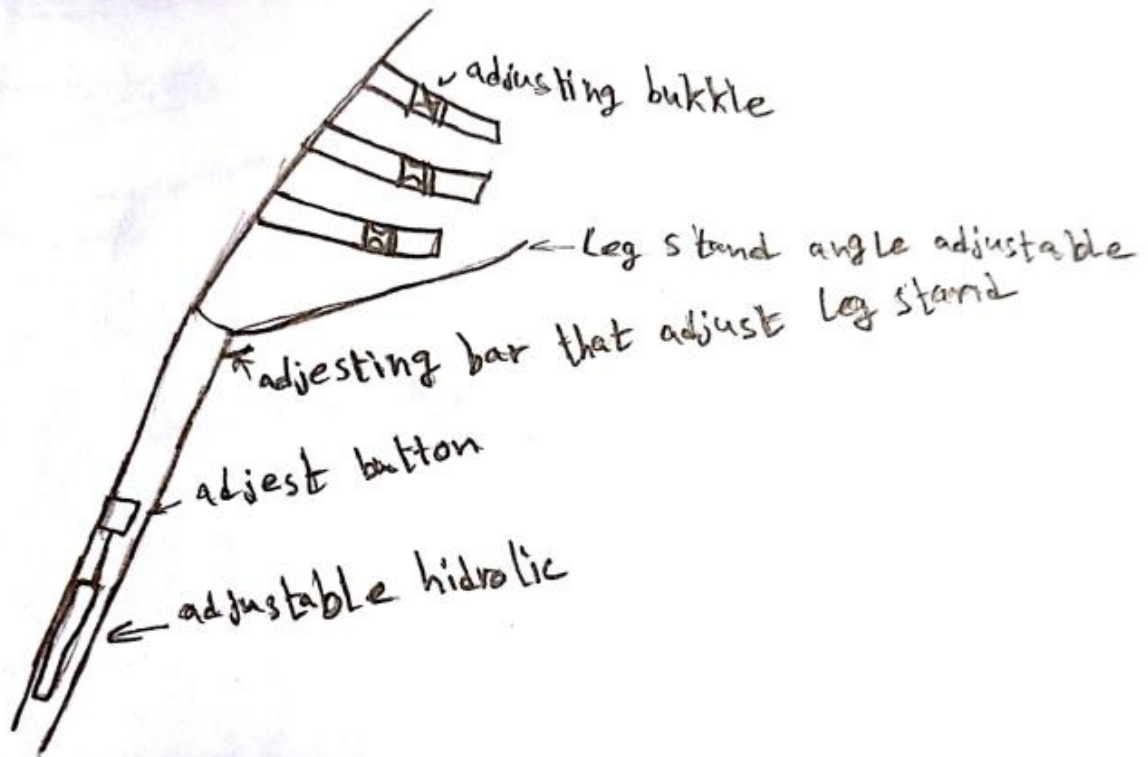 adjusting bukkle
Leg stand angle adjustable
adjesting bar that adjust Leg stand
adjest button
adjustable hidrolic